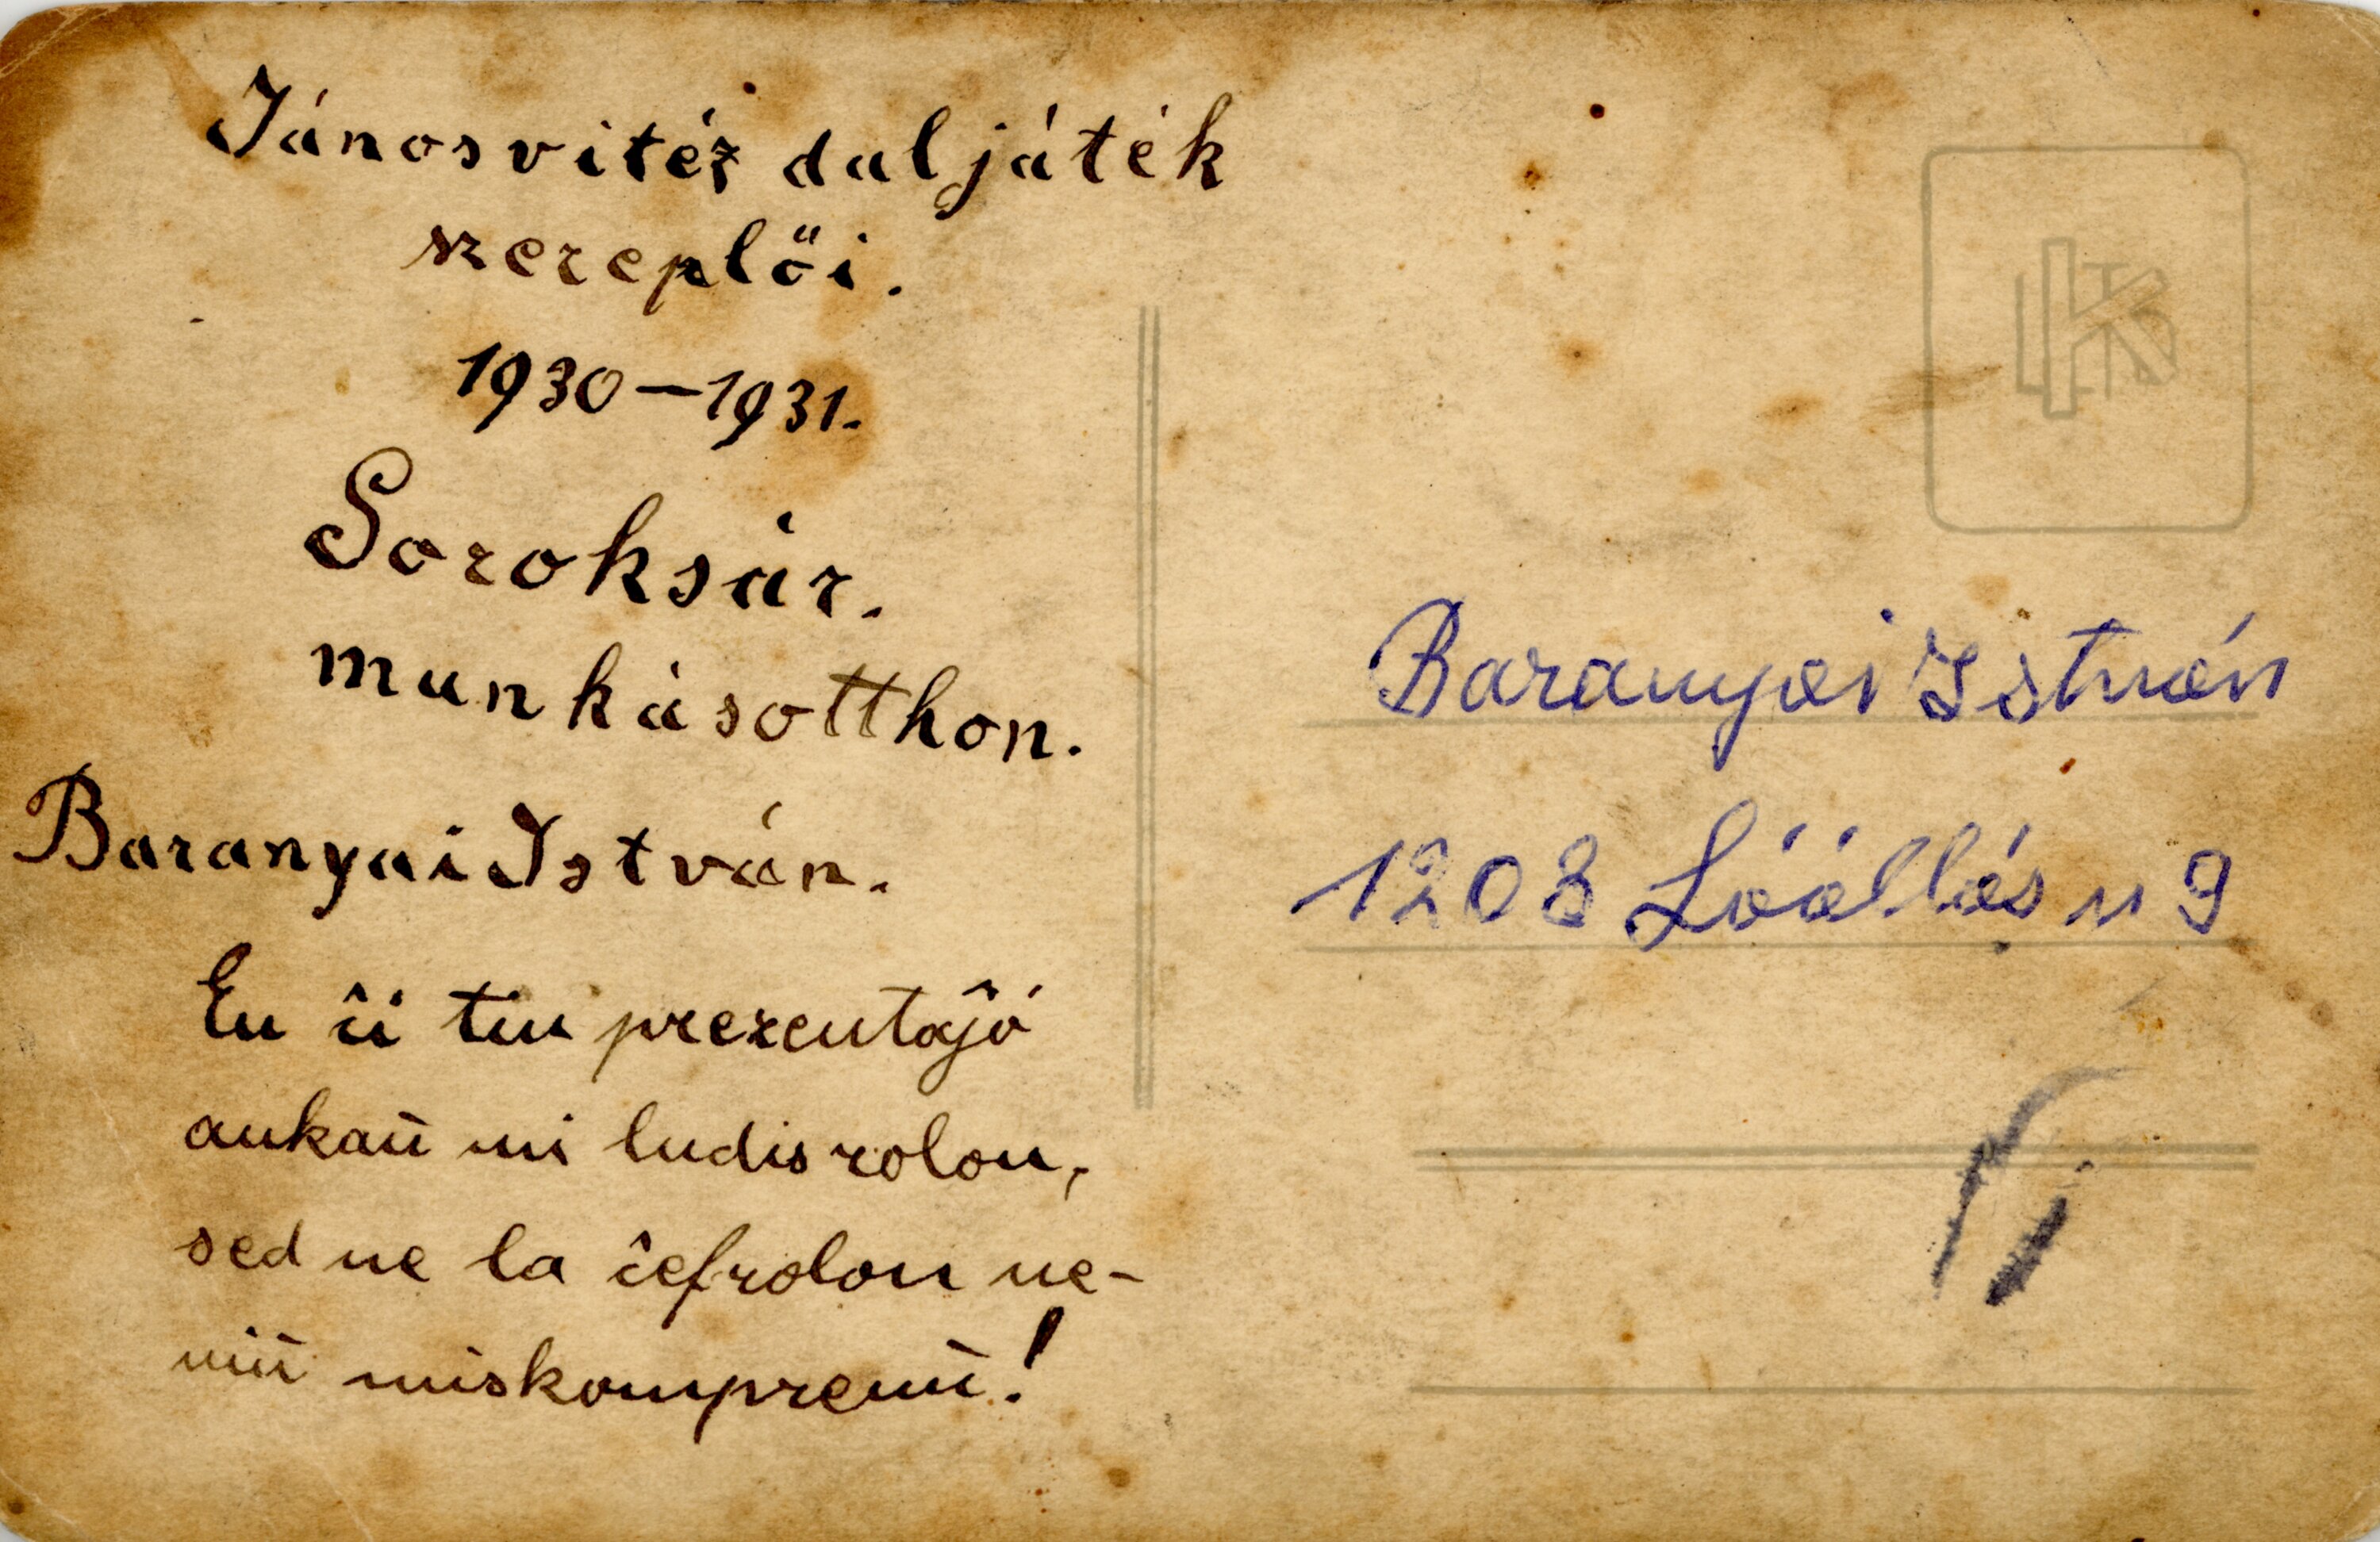 Jánosvitéz daljáték
szereplői.
1930—1931.
Soroksár.
munkásotthon.
Baranyai István.
En ĉi tiu prezentaĵo
ankaŭ mi ludis rolon,
sed ne la ĉefrolon ne-
niu miskomprenu!
Baranyai István
1203 Lóállás u 9